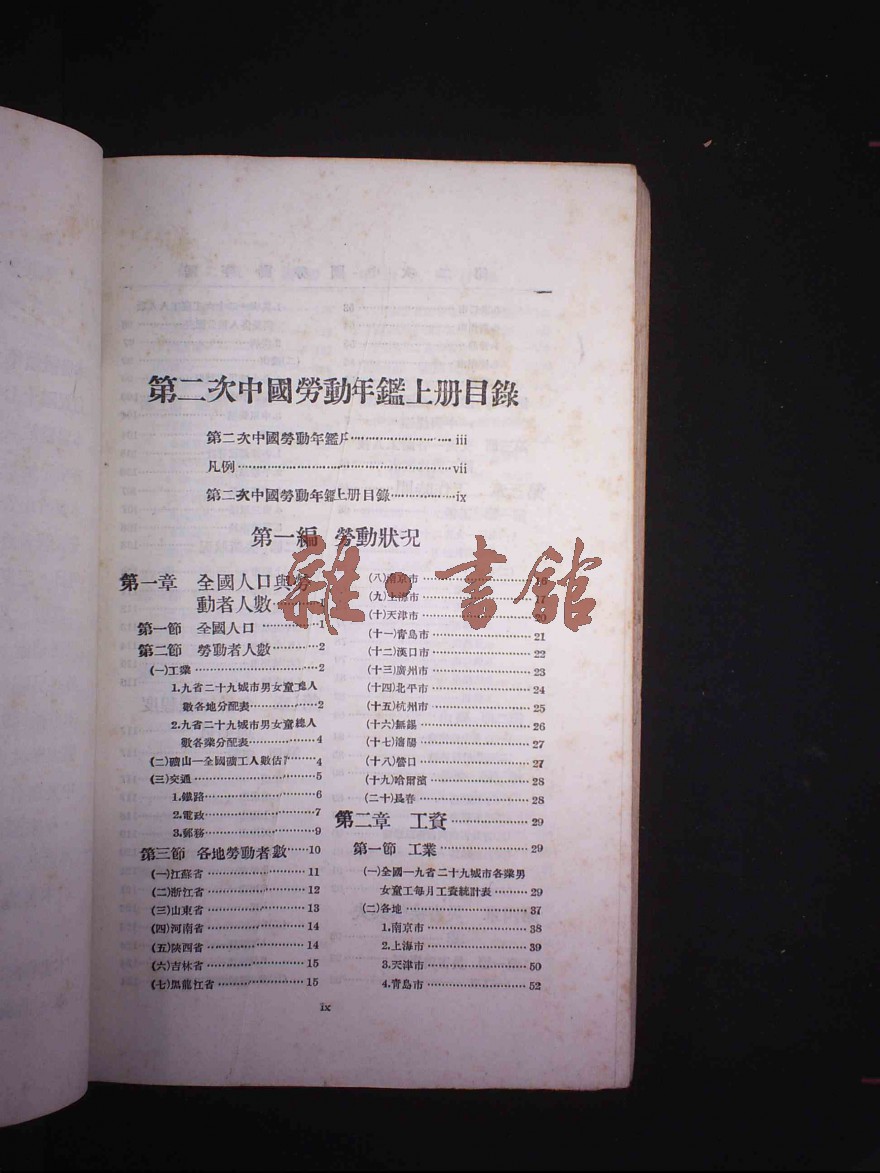 第二次中國勞動年鑑上册目錄
第二次中國勞動年鑑 iii
凡例 vii
第二次中國勞動年鑑上册目錄 ix
第一編 勞動狀況
第一章 全國人口與勞
動者人數 1
第一節 全國人口 1
第二節 勞動者人數 2
(一)工業 2
1.九省二十九城市男女童工總人
數各地分配表 2
2.九省二十九城市男女童工總人
數各業分配表 4
(二)礦山—全國礦工人數估 4
(三)交通 5
1.鐵路 6
2.電政 7
3.郵務 9
第三節 各地勞動者數 10
(一)江蘇省 11
(二)浙江省 12
(三)山東省 13
(四)河南省 14
(五)陝西省 14
(六)吉林省 15
(七)黑龍江省 15
(八)南京市 16
(九)上海市 17
(十)天津市 20
(十一)青島市 21
(十二)漢口市 22
(十三)廣州市 23
(十四)北平市 24
(十五)杭州市 25
(十六)無錫 26
(十七)瀋陽 27
(十八)營口 27
(十九)哈爾濱 28
(二十)長春 28
第二章 工資 29
第一節 工業 29
(一)全國—九省二十九城市各業男
女童工每月工資統計表 29
(二)各地 37
1.南京市 38
2.上海市 39
3.天津市 50
4.青島市 52
ix
雜·書館